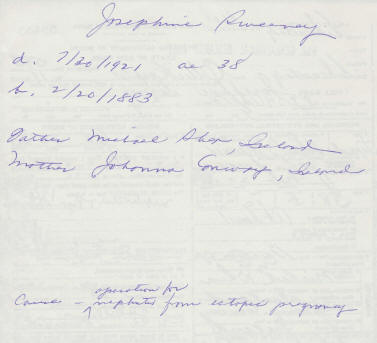 Josephine Sweeney
d. 7/30/1921 ae 38
b. 2/20/1883
Father Michael Shea, Ireland
Mother Johanna Conway, Ireland
operation for
Cause - nephritis from ectopic pregnancy